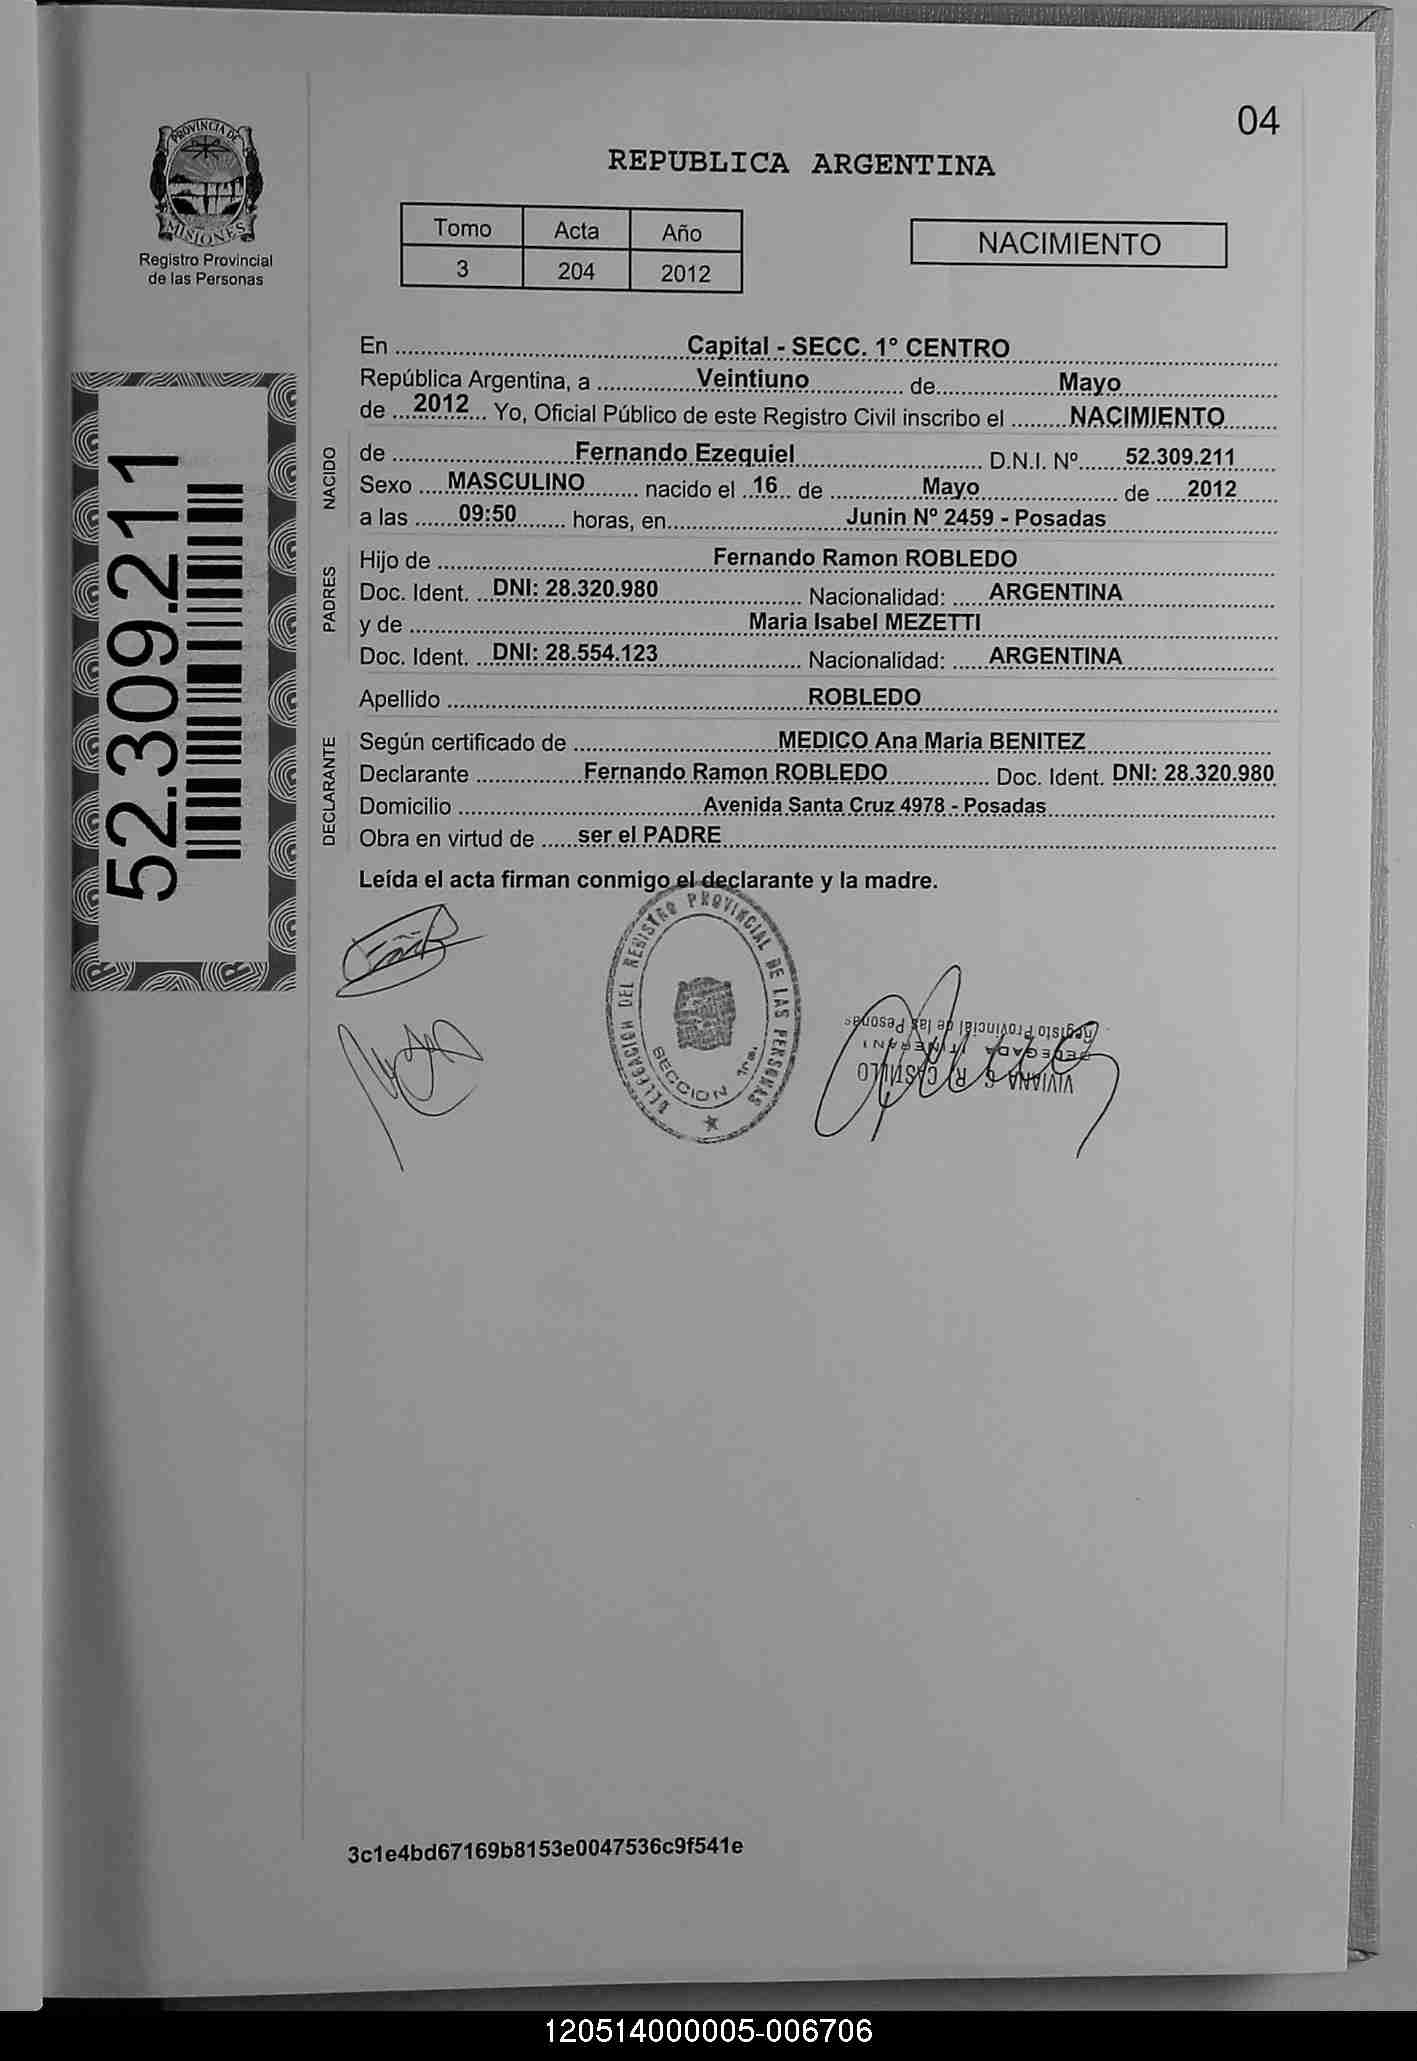 04
PROVINCIA DE
MISIONES
Registro Provincial
de las Personas
REPUBLICA ARGENTINA
Tomo Acta Año
3 204 2012
NACIMIENTO
52.309.211
En Capital - SECC. 1º CENTRO
República Argentina, a Veintiuno de Mayo
de 2012 Yo, Oficial Público de este Registro Civil inscribo el NACIMIENTO
NACIDO
de Fernando Ezequiel D.N.I. Nº 52.309.211
Sexo MASCULINO nacido el 16 de Mayo de 2012
a las 09:50 horas, en Junin Nº 2459 - Posadas
PADRES
Hijo de Fernando Ramon ROBLEDO
Doc. Ident. DNI: 28.320.980 Nacionalidad: ARGENTINA
y de Maria Isabel MEZETTI
Doc. Ident. DNI: 28.554.123 Nacionalidad: ARGENTINA
Apellido ROBLEDO
DECLARANTE
Según certificado de MEDICO Ana Maria BENITEZ
Declarante Fernando Ramon ROBLEDO Doc. Ident. DNI: 28.320.980
Domicilio Avenida Santa Cruz 4978 - Posadas
Obra en virtud de ser el PADRE
Leída el acta firman conmigo el declarante y la madre.
DELEGACION DEL REGISTRO PROVINCIAL DE LAS PERSONAS
SECCION 1ra.
VIVIANA G. R. CASTILLO
Registro Provincial de las Pesonas
3c1e4bd67169b8153e0047536c9f541e
120514000005-006706